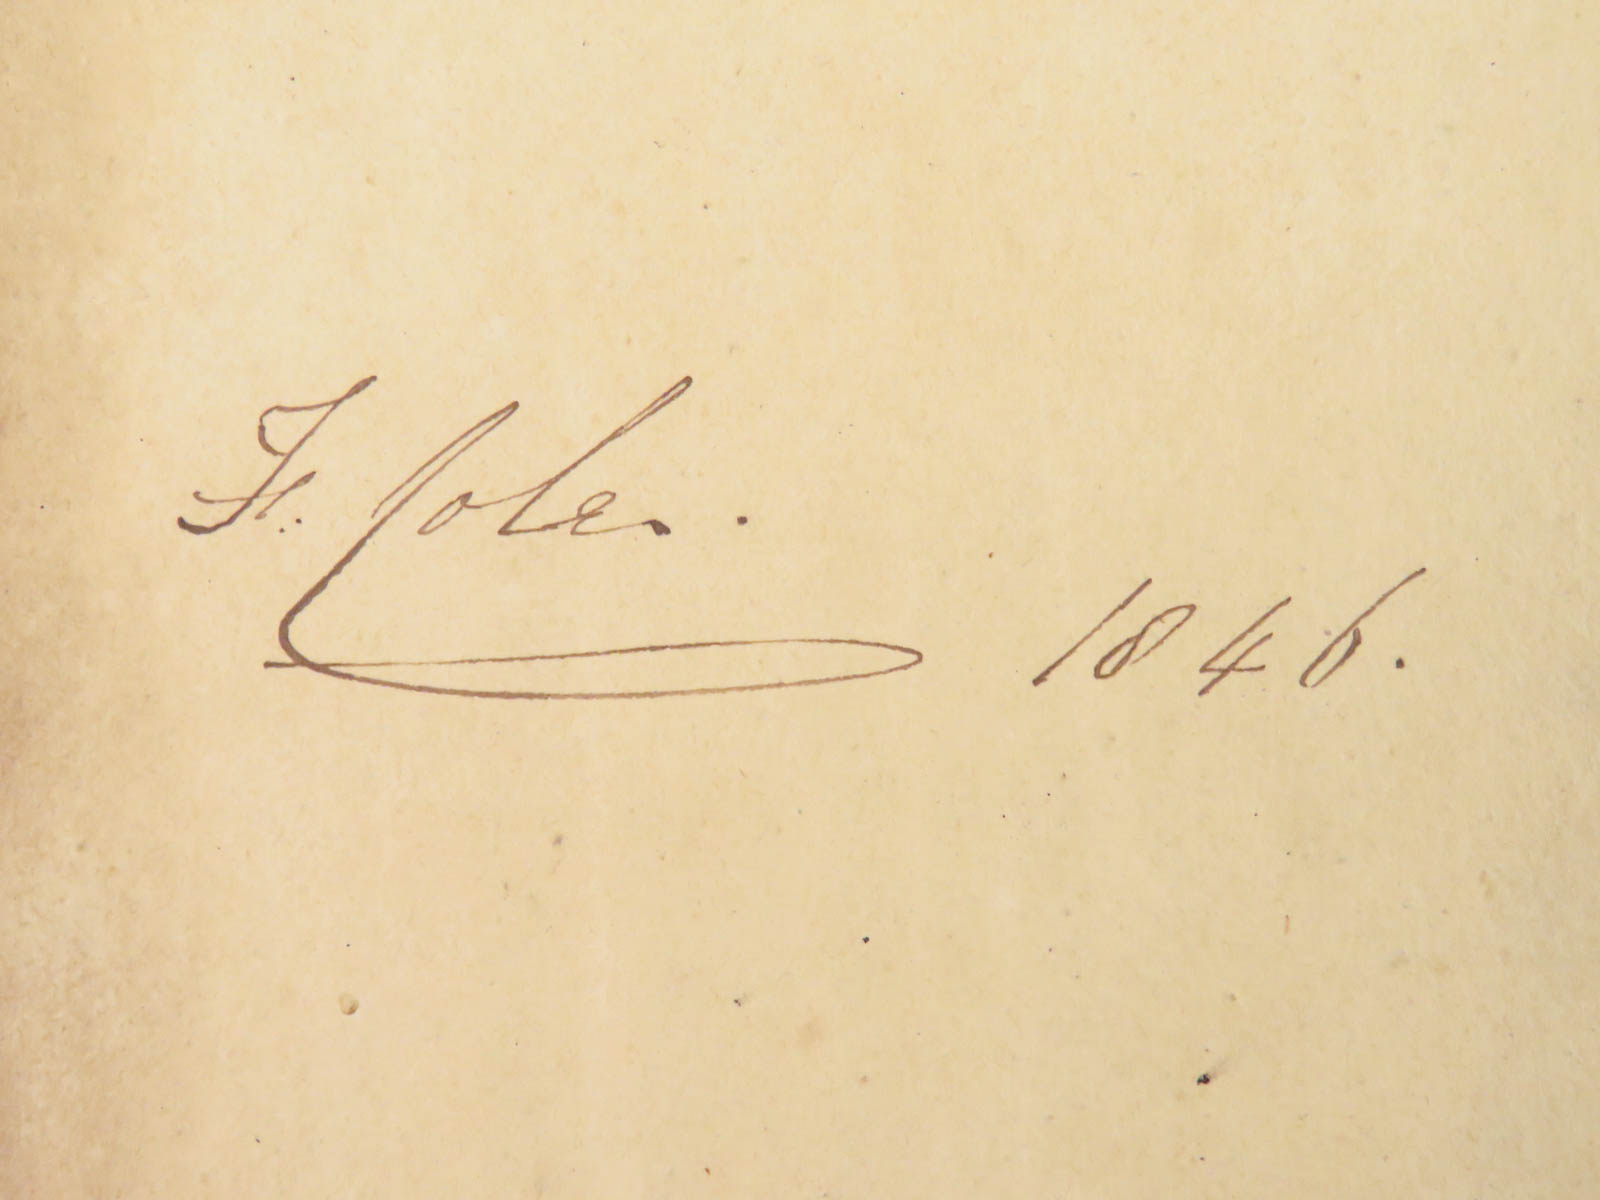 F. Coles.
1846.